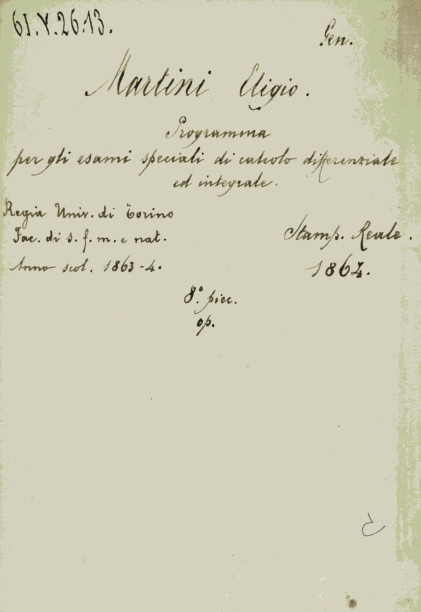 61.V.26.13.
Gen.
Martini Eligio.
Programma
per gli esami speciali di calcolo differenziale
ed integrale.
Regia Univ. di Torino
Fac. di s. f. m. e nat.
Anno scol. 1863-4.
Stamp. Reale.
1864.
8.° picc.
op.